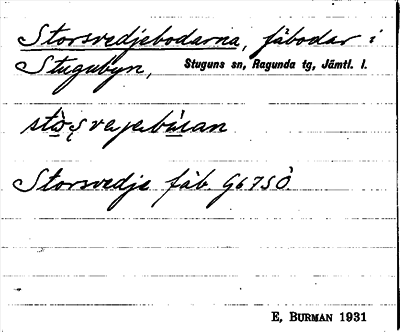 Storsvedjebodarna, fäbodar i
Stugubyn, Stuguns sn, Ragunda tg, Jämtl. l.
Storsvedje fäb. G6750
E, BURMAN 1931